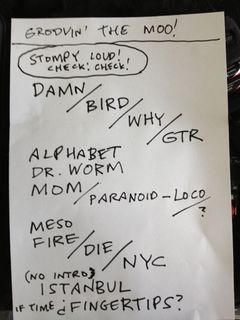 GROOVIN' THE MOO!
STOMPY LOUD!
CHECK! CHECK!
DAMN/
BIRD/
WHY/
GTR
ALPHABET
DR. WORM
MOM/
PARANOID - LOCO
?
MESO
FIRE/
DIE/
NYC
(NO INTRO)
ISTANBUL
IF TIME ¿ FINGERTIPS?